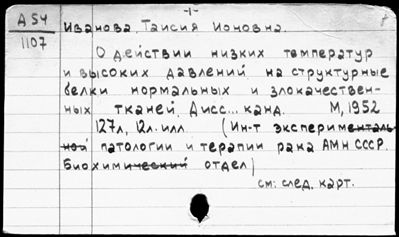 -1-
А 54
1107
Иванова, Таисия Ионовна.
О действии низких температур
и высоких давлений на структурные
белки нормальных и злокачествен-
ных тканей. Дисс... канд. М, 1952
127л, 12л. илл. (Ин-т эксперименталь-
ной патологии и терапии рака АМН СССР.
Биохимический отдел)
см. след. карт.